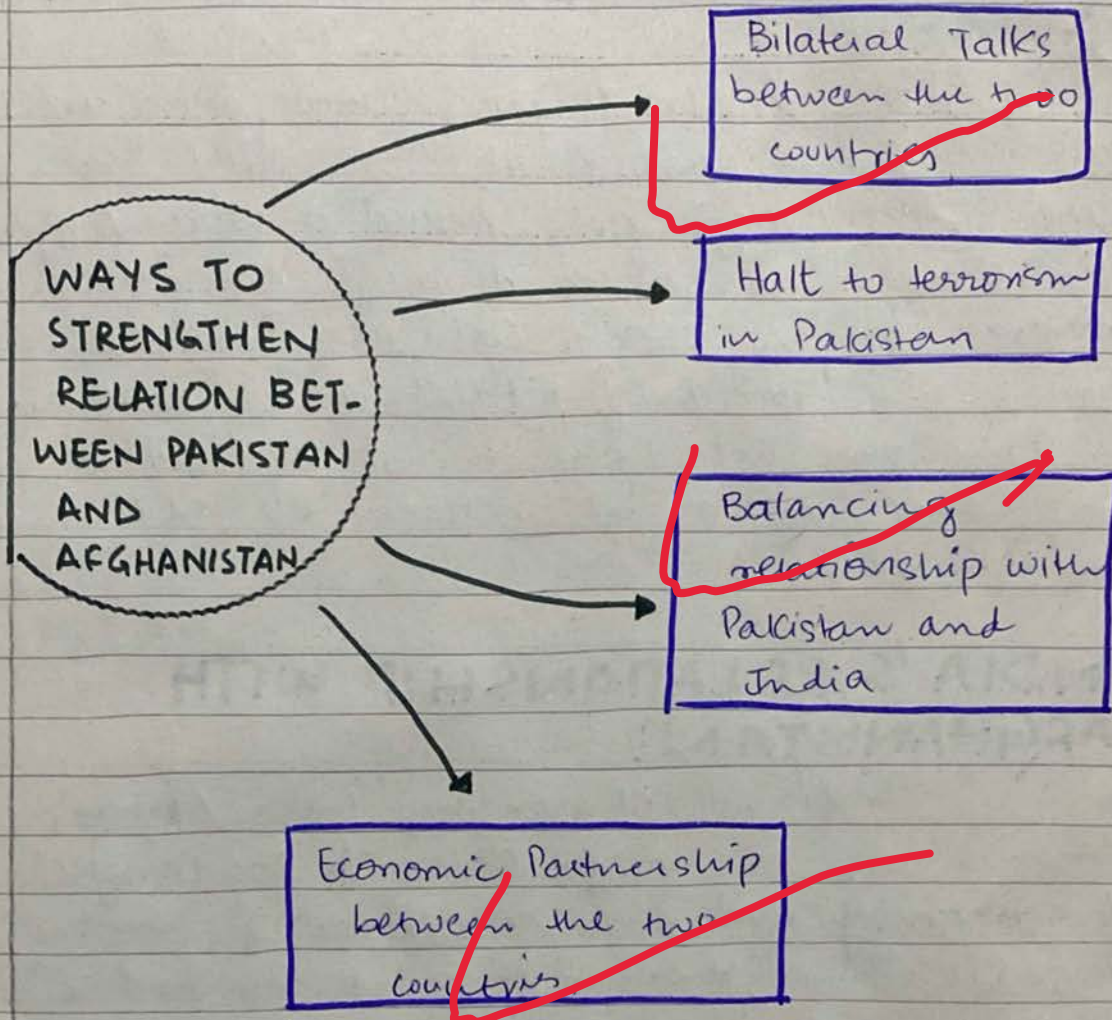 WAYS TO
STRENGTHEN
RELATION BET-
WEEN PAKISTAN
AND
AFGHANISTAN
Bilateral Talks
between the two
countries
Halt to terrorism
in Pakistan
Balancing
relationship with
Pakistan and
India
Economic Partnership
between the two
countries